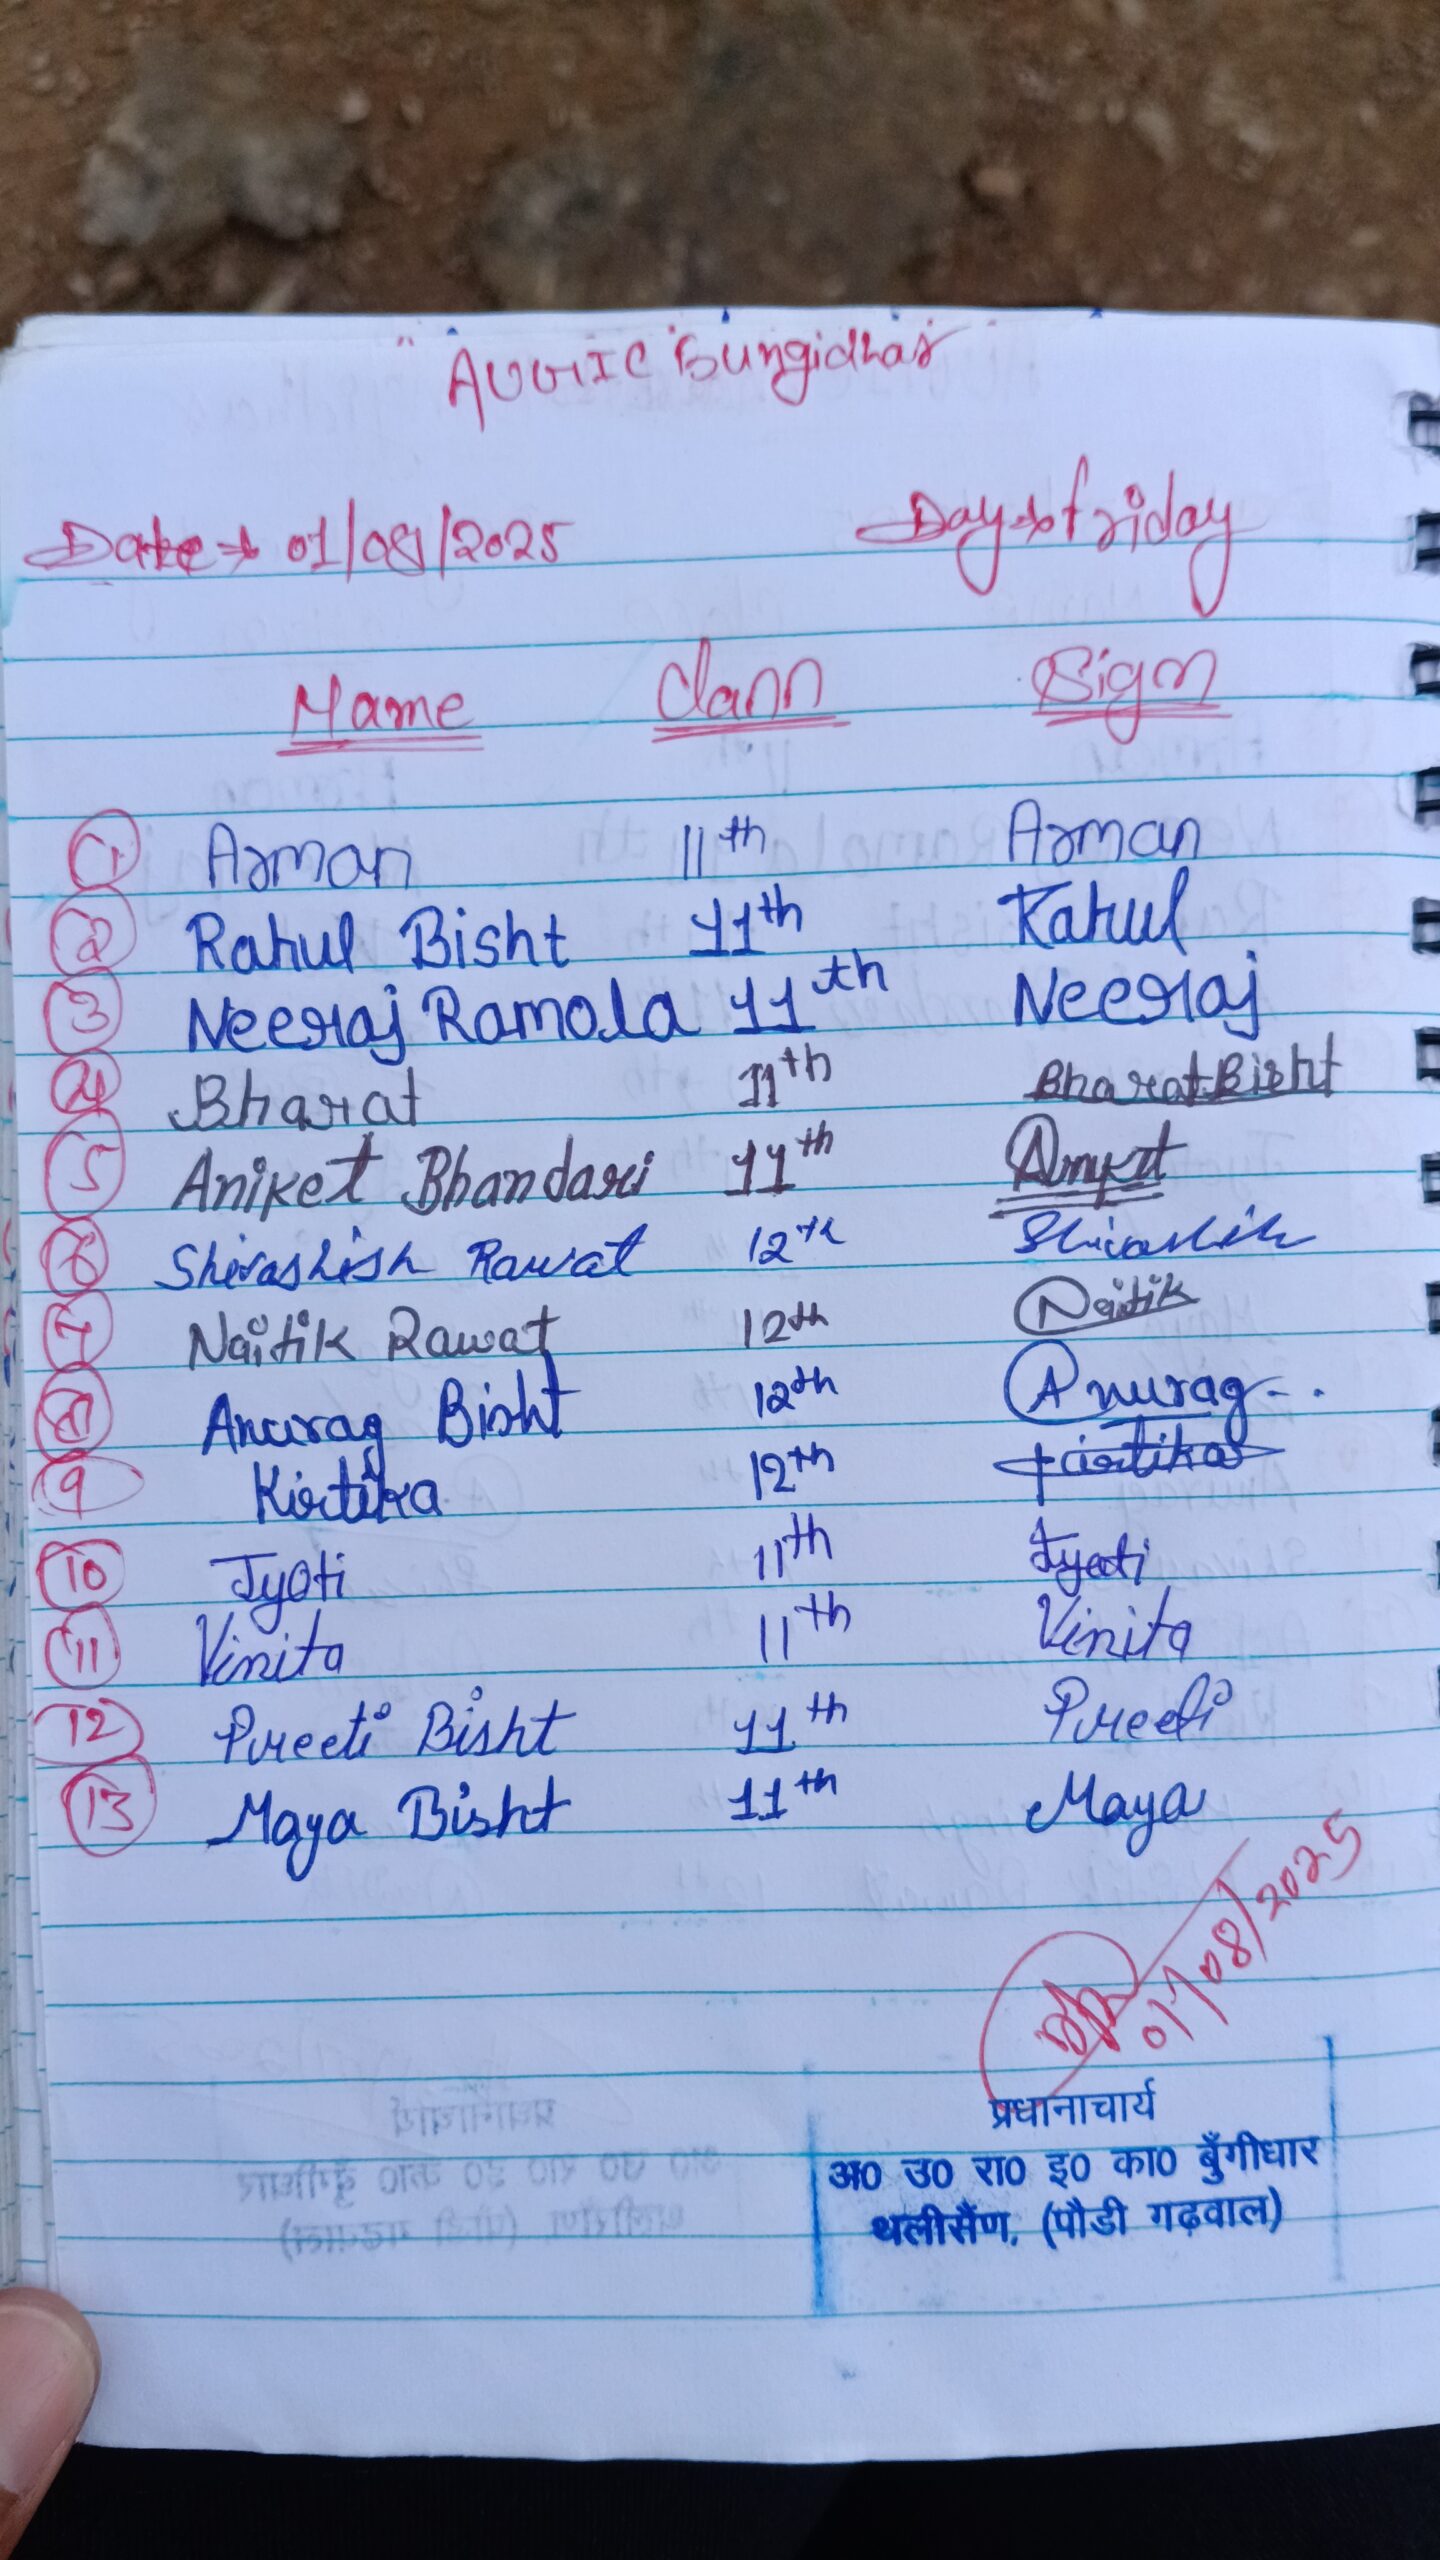 " AUGIC Bungidhar "
Date → 01/08/2025 Day → Friday
Name Class Sign
1 Arman 11th Arman
2 Rahul Bisht 11th Rahul
3 Neeraj Ramola 11th Neeraj
4 Bharat 11th Bharat Bisht
5 Aniket Bhandari 11th Aniket
6 Shivashish Rawat 12th Shivashish
7 Naitik Rawat 12th Naitik
8 Anurag Bisht 12th Anurag
9 Kirtika 12th Kirtika
10 Jyoti 11th Jyoti
11 Vinita 11th Vinita
12 Preeti Bisht 11th Preeti
13 Maya Bisht 11th Maya
01/08/2025
प्रधानाचार्य
अ0 उ0 रा0 इ0 का0 बुँगीधार
थलीसैंण, (पौडी गढ़वाल)